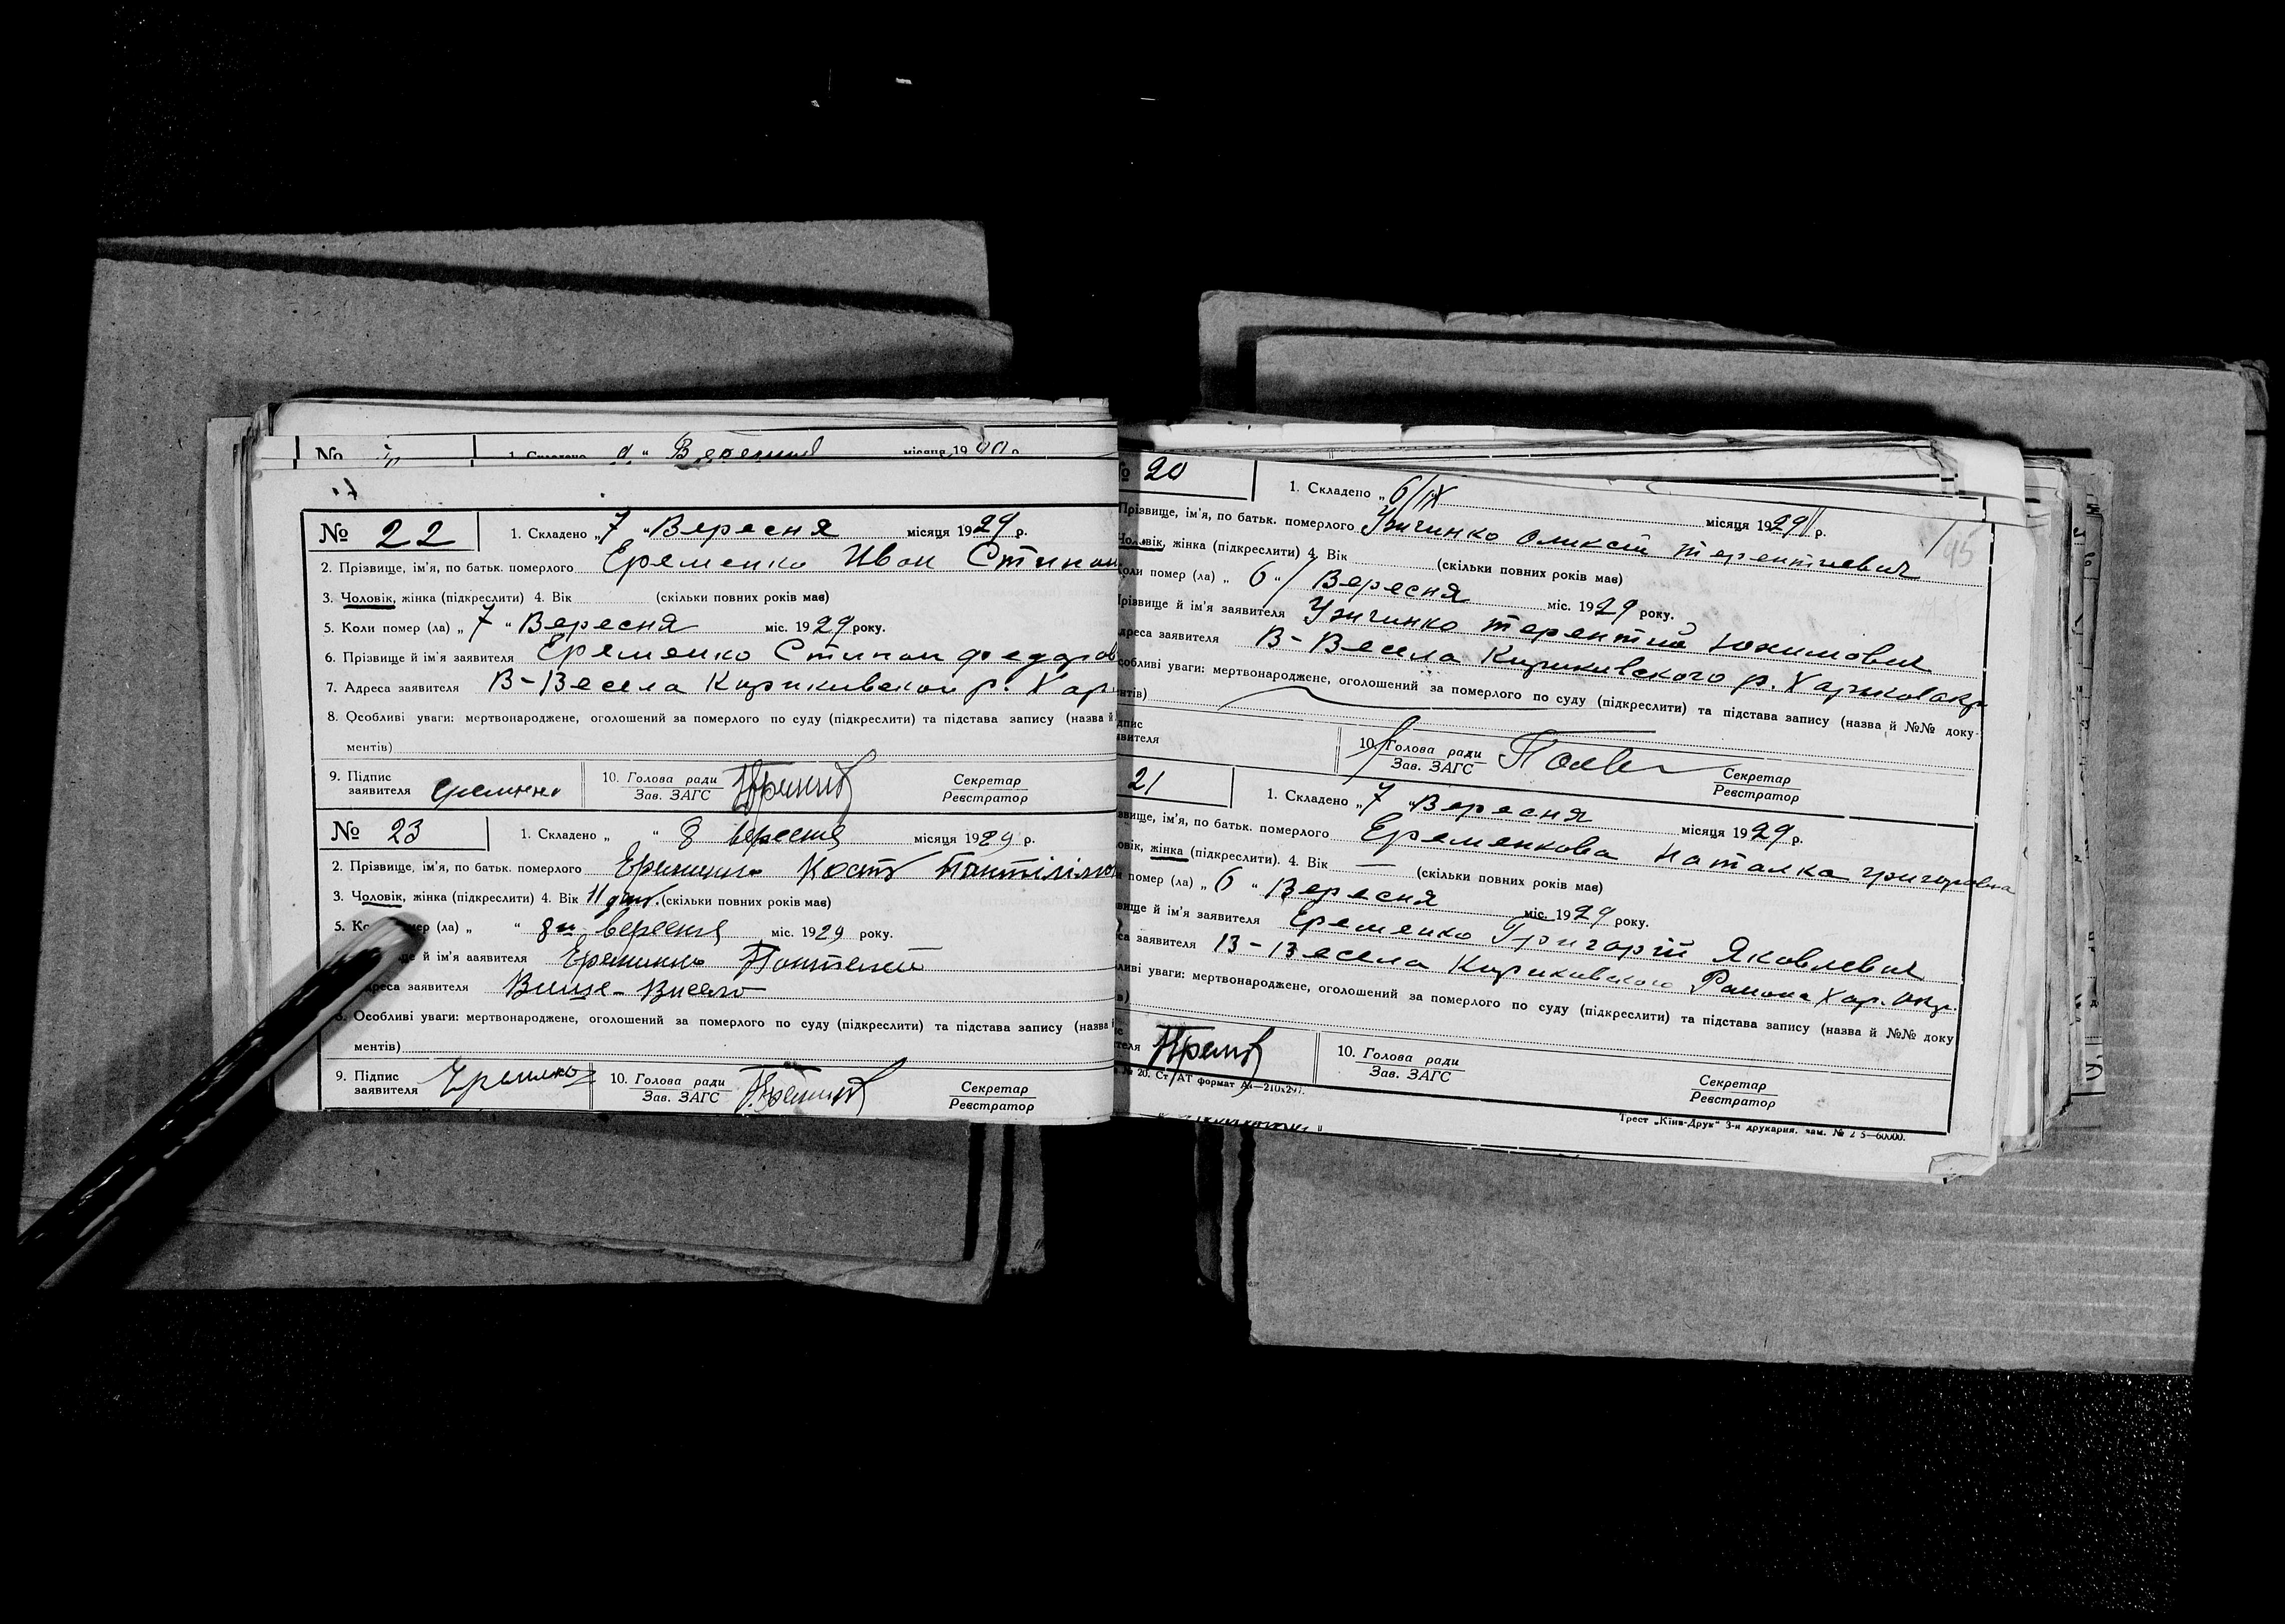 № 22 1. Складено „7 " Вересня місяця 1929 р.
2. Прізвище, ім'я, по батьк. померлого Еременко Иван Степан
3. Чоловік, жінка (підкреслити) 4. Вік (скільки повних років має)
5. Коли помер (ла) „ 7 " Вересня міс. 1929 року.
6. Прізвище й ім'я заявителя Еременко Степан федоров
7. Адреса заявителя В-Весела Кириковской р. Хар
8. Особливі уваги: мертвонароджене, оголошений за померлого по суду (підкреслити) та підстава запису (назва й
ментів)
9. Підпис заявителя 10. Голова ради Зав. ЗАГС Секретар Реєстратор
№ 23 1. Складено „ " 8 вересня місяця 1929 р.
2. Прізвище, ім'я, по батьк. померлого Кость
3. Чоловік, жінка (підкреслити) 4. Вік 11 (скільки повних років має)
5. (ла) „ " 8 вересня міс. 1929 року.
й ім'я заявителя Пантелей
заявителя Висело
8. Особливі уваги: мертвонароджене, оголошений за померлого по суду (підкреслити) та підстава запису (назва
ментів)
9. Підпис заявителя 10. Голова ради Зав. ЗАГС Секретар Реєстратор
№ 20 1. Складено „6/IX місяця 1929 р.
Прізвище, ім'я, по батьк. померлого терентиевич
Чоловік, жінка (підкреслити) 4. Вік (скільки повних років має)
Коли помер (ла) „ 6 " Вересня міс. 1929 року.
Прізвище й ім'я заявителя терентий Юхимович
Адреса заявителя В-Весела Кириковского р. Харьков окр
Особливі уваги: мертвонароджене, оголошений за померлого по суду (підкреслити) та підстава запису (назва й №№ доку-
ментів)
10. Голова ради Зав. ЗАГС Секретар Реєстратор
95
21 1. Складено „7 " Вересня місяця 1929 р.
ім'я, по батьк. померлого Еременкова Наталка григоровна
жінка (підкреслити). 4. Вік — (скільки повних років має)
помер (ла) „ 6 " Вересня міс. 1929 року.
й ім'я заявителя Еременко Григорій Яковлевич
заявителя В-Весела Кириковского Района Хар. Окр.
уваги: мертвонароджене, оголошений за померлого по суду (підкреслити) та підстава запису (назва й №№ доку
10. Голова ради Зав. ЗАГС Секретар Реєстратор
№ 20. Ст. АТ формат
Трест „Київ-Друк" 3-я друкарня.